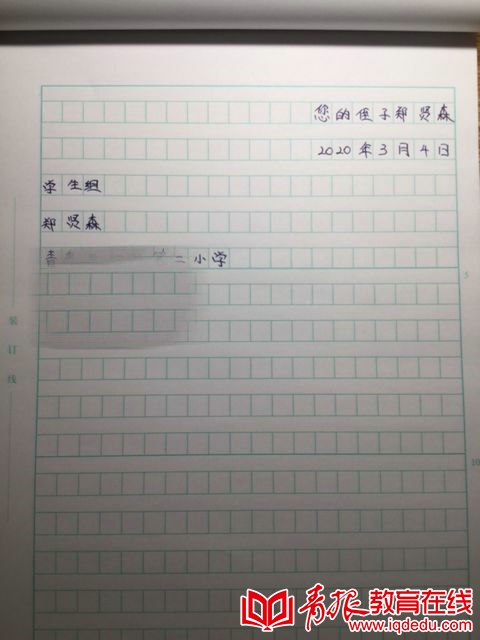 您的侄子郑贤森
2020年3月4日
学生组
郑贤森
青
二小学
5
装订线
10
青报教育在线
www.iqdedu.com